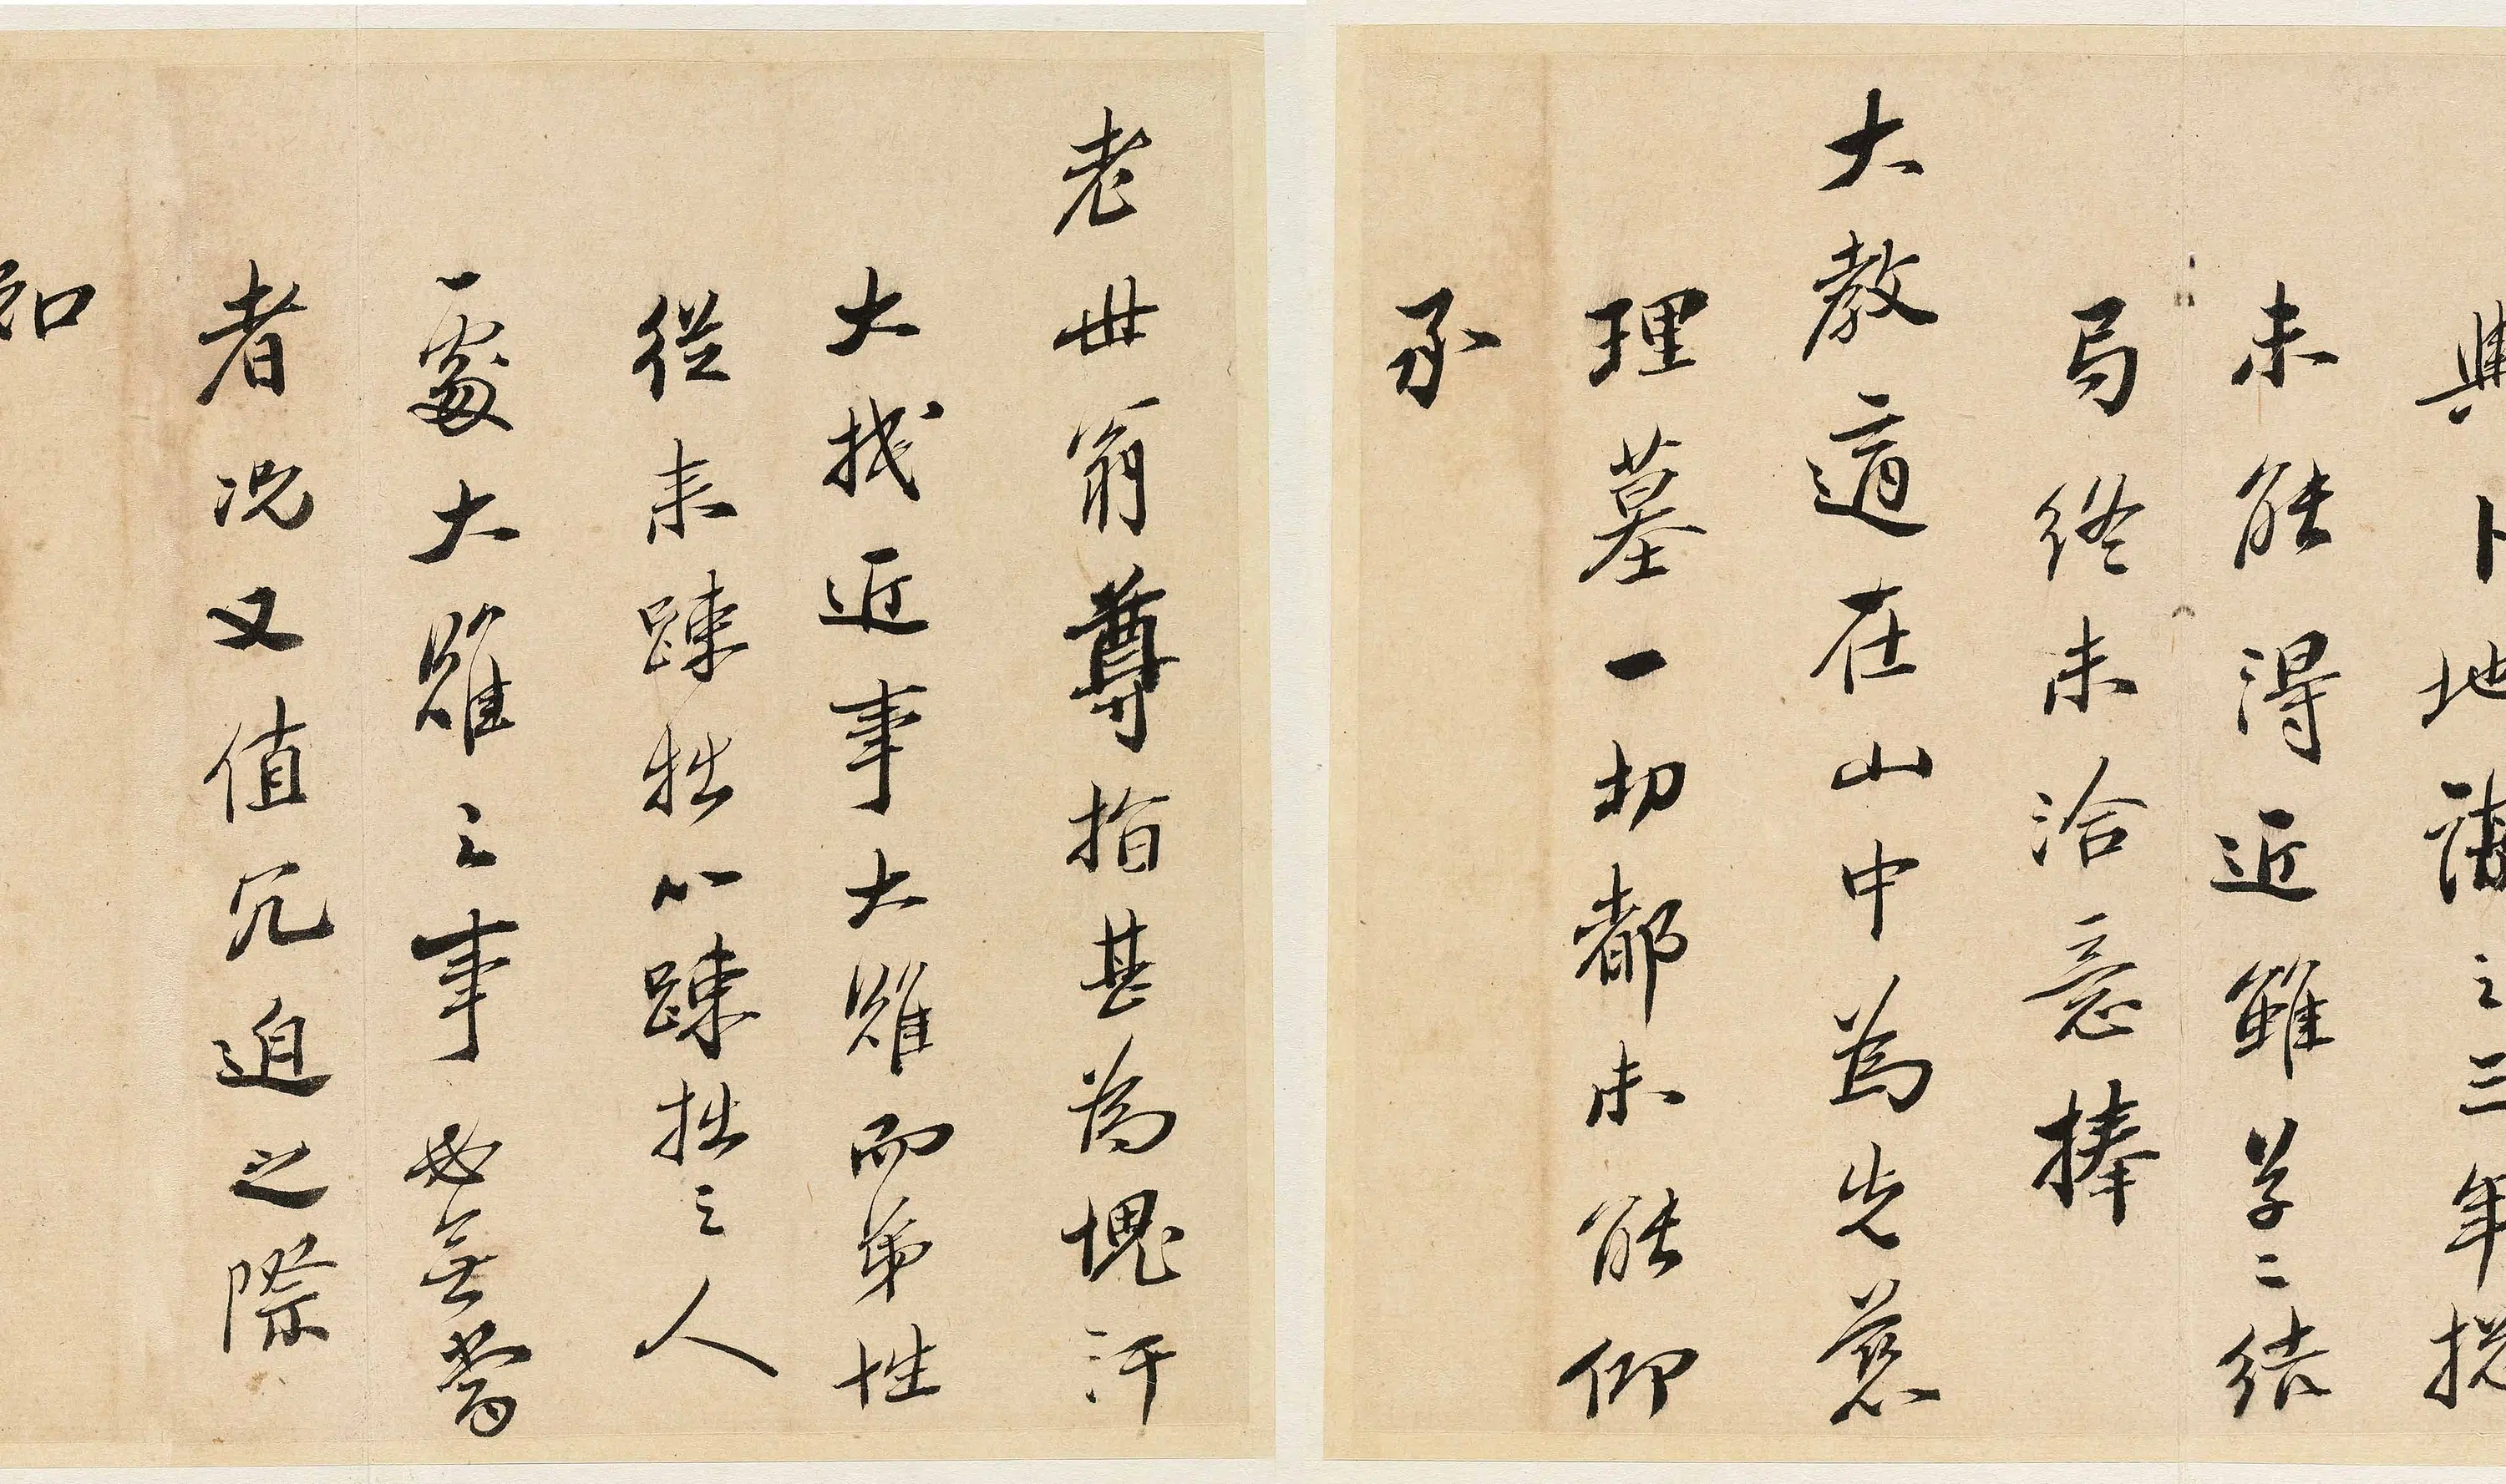 興卜地讀之三年挩
未能得近雖草二結
局終未洽意捧
大教適在山中為先慈
理墓一切都未能仰
承
老世翁尊指甚為愧汗
大找近事大難而弟性
從來踈拙以踈拙之人
處大難之事必無當
者况又值冗迫之際
知